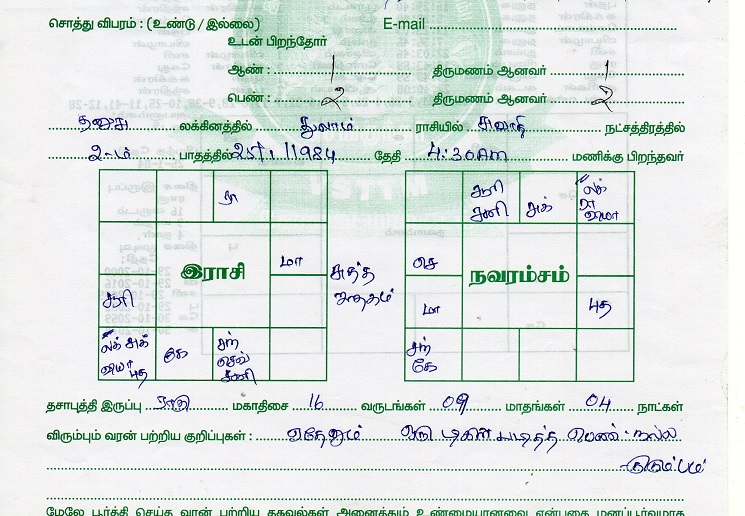 சொத்து விபரம் : (உண்டு / இல்லை) E-mail
உடன் பிறந்தோர்
ஆண் : 1 திருமணம் ஆனவர் : 1
பெண் : 2 திருமணம் ஆனவர் : 2
தனுசு லக்கினத்தில் துலாம் ராசியில் சுவாதி நட்சத்திரத்தில்
2-ம் பாதத்தில் 25/1/1984 தேதி 4:30 AM மணிக்கு பிறந்தவர்
ரா
சூரி
மா
இராசி
லக் சுக்
வியா புத
கே
சந்
செவ்
சனி
சுத்த
ஜாதகம்
சூரி
சனி
சுக்
லக்
ரா
வியா
செ
மா
நவாம்சம்
புத
சந்
கே
தசாபுத்தி இருப்பு ராகு மகாதிசை 16 வருடங்கள் 09 மாதங்கள் 04 நாட்கள்
விரும்பும் வரன் பற்றிய குறிப்புகள் : ஏதேனும் ஒரு டிகிரி படித்த பெண் - நல்ல
குடும்பம்
மேலே பூர்த்தி செய்த வரன் பற்றிய தகவல்கள் அனைத்தும் உண்மையானவை என்பதை மனப்பூர்வமாக